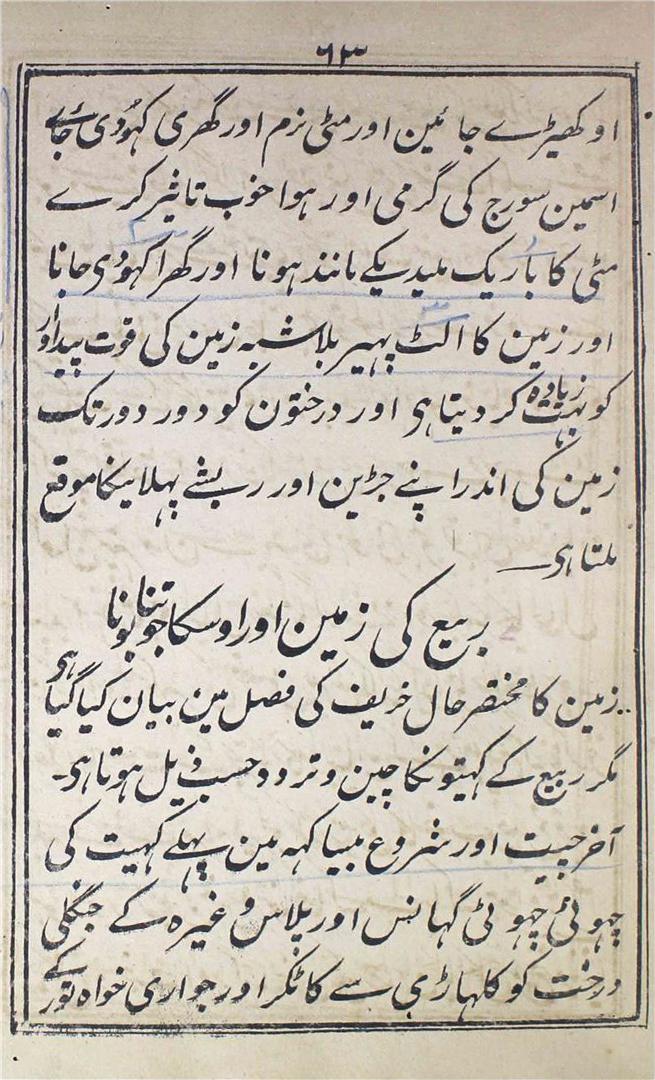 ٦٣
اوکھیڑے جائین اور مٹی نرم اور گھری کھودی جائے
اسمین سورج کی گرمی اور ہوا خوب تاثیر کرے
مٹی کا باریک میدیکے مانند ہونا اور گھرا کھودی جانا
اور زمین کا الٹ پھیر بلاشبہ زمین کی قوت پیداوار
کو بہت زیادہ کر دیتا ہی اور درختون کو دور دور تک
زمین کی اندر اپنے جڑین اور ریشے پھلا نیکا موقع
ملتا ہی
ربیع کی زمین اور اوسکا جوتنا بونا
زمین کا مختصر حال خریف کی فصل مین بیان کیا گیا ہی
مگر ربیع کے کھیتونکا چین و تردد حسب ذیل ہوتا ہی۔
آخر چیت اور شروع بیساکھہ مین پہلے کھیت کی
چہوٹی چہوٹی گہانس اور پلاس وغیرہ کے جنگلی
درخت کو کلہاڑی سے کاٹکر اور جواری خواہ تور کے